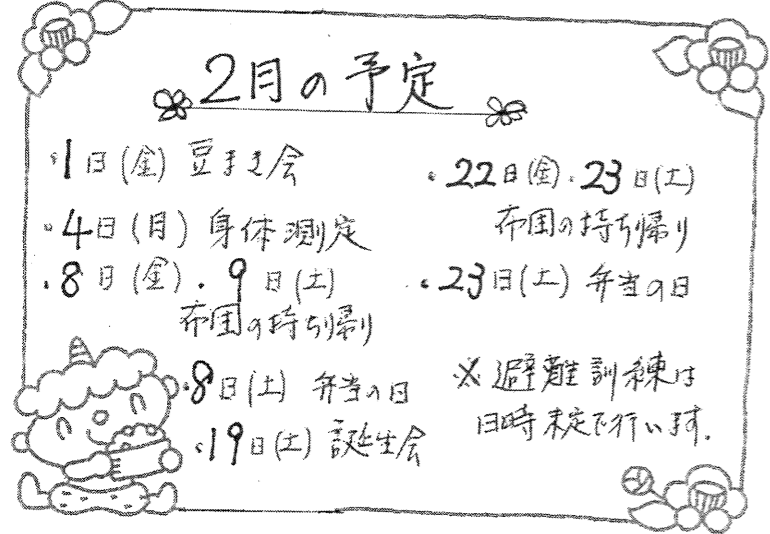 2月の予定
・1日(金) 豆まき会
・4日(月) 身体測定
・8日(金)・9日(土)
布団の持ち帰り
・8日(土) 弁当の日
・19日(土) 誕生会
・22日(金)・23日(土)
布団の持ち帰り
・23日(土) 弁当の日
※避難訓練は
日時未定で行います.